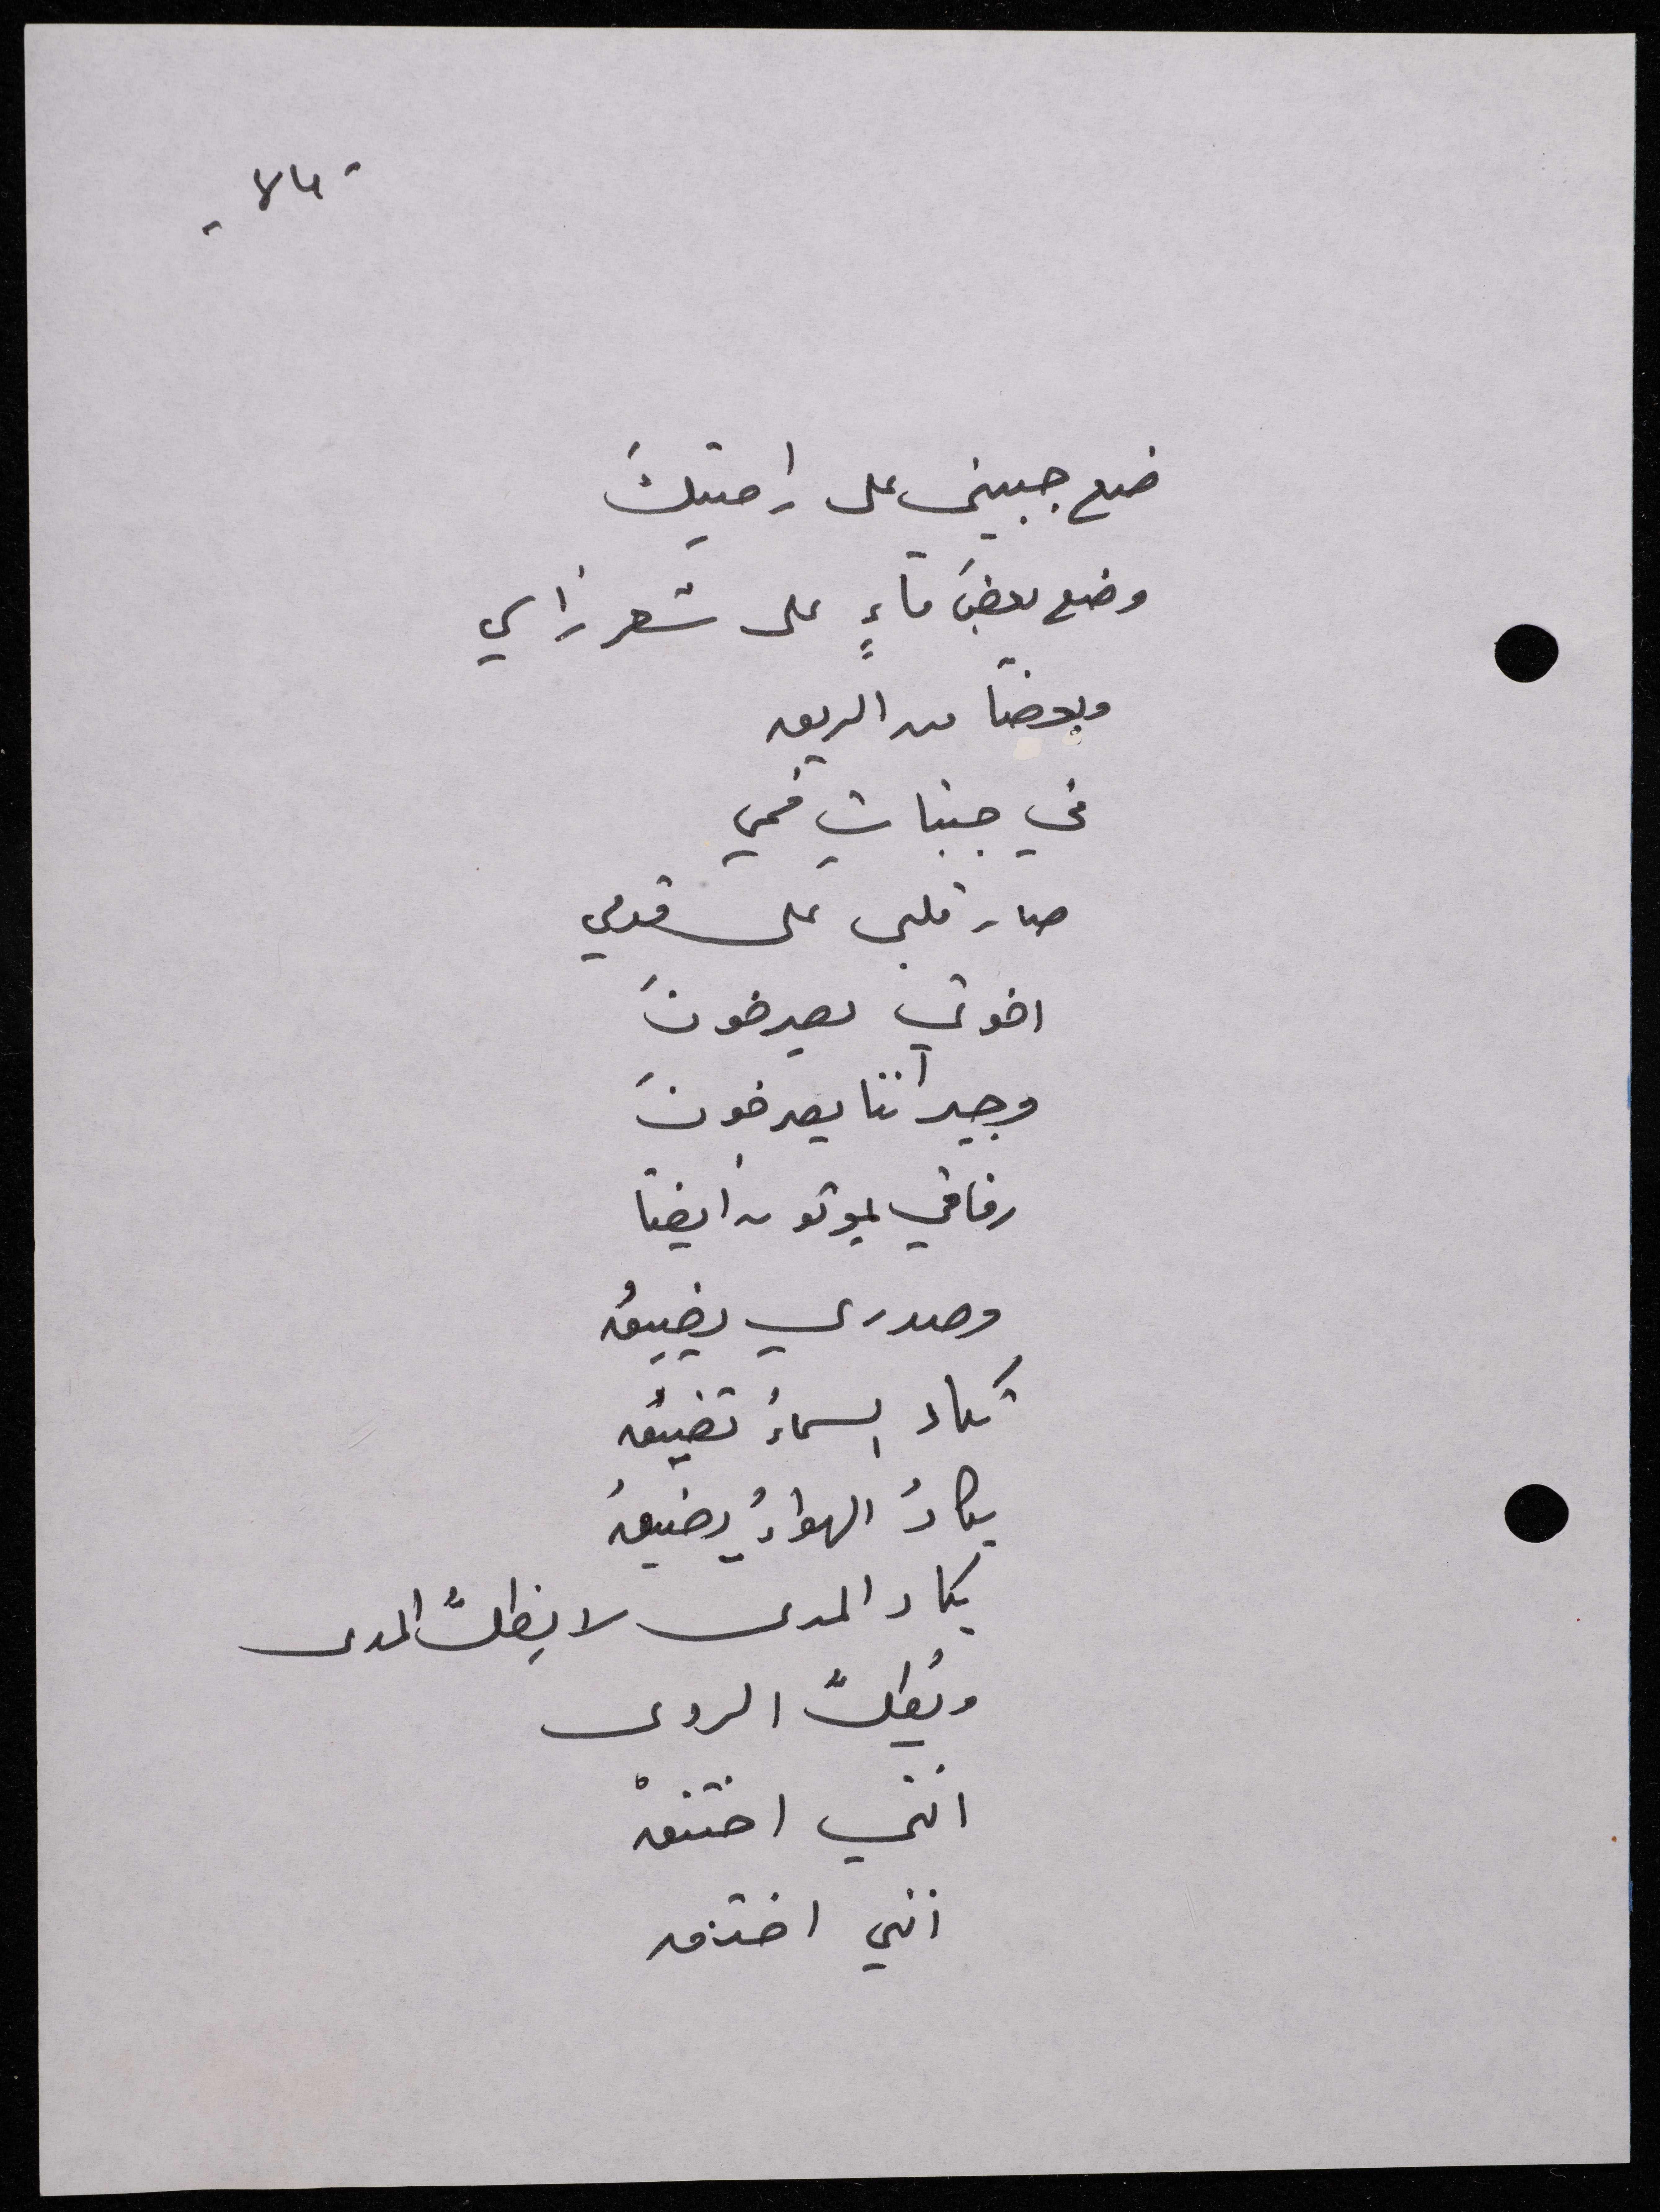 ضع جبيني على راحتيكَ
وضع بعضَ ماءٍ على شعر رأسي
وبعضا من الريق
في جنبات فمي
صار قلبي على قدمي
اخوتي يصرخونَ
وجيراننا يصرخونَ
رفاقي يموتون ايضا
وصدري يضيقُ
تكاد السماءُ تضيقُ
يكادُ الهواءُ يضيقُ
يكاد المدى لا يطلُّ المدى
ويُطلُّ الردى
انني اختنقْ
انني اختنق